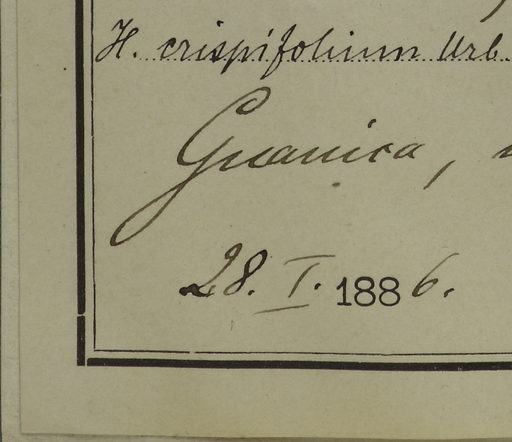 H. crispifolium Urb.
Guanica,
28. I. 1886.